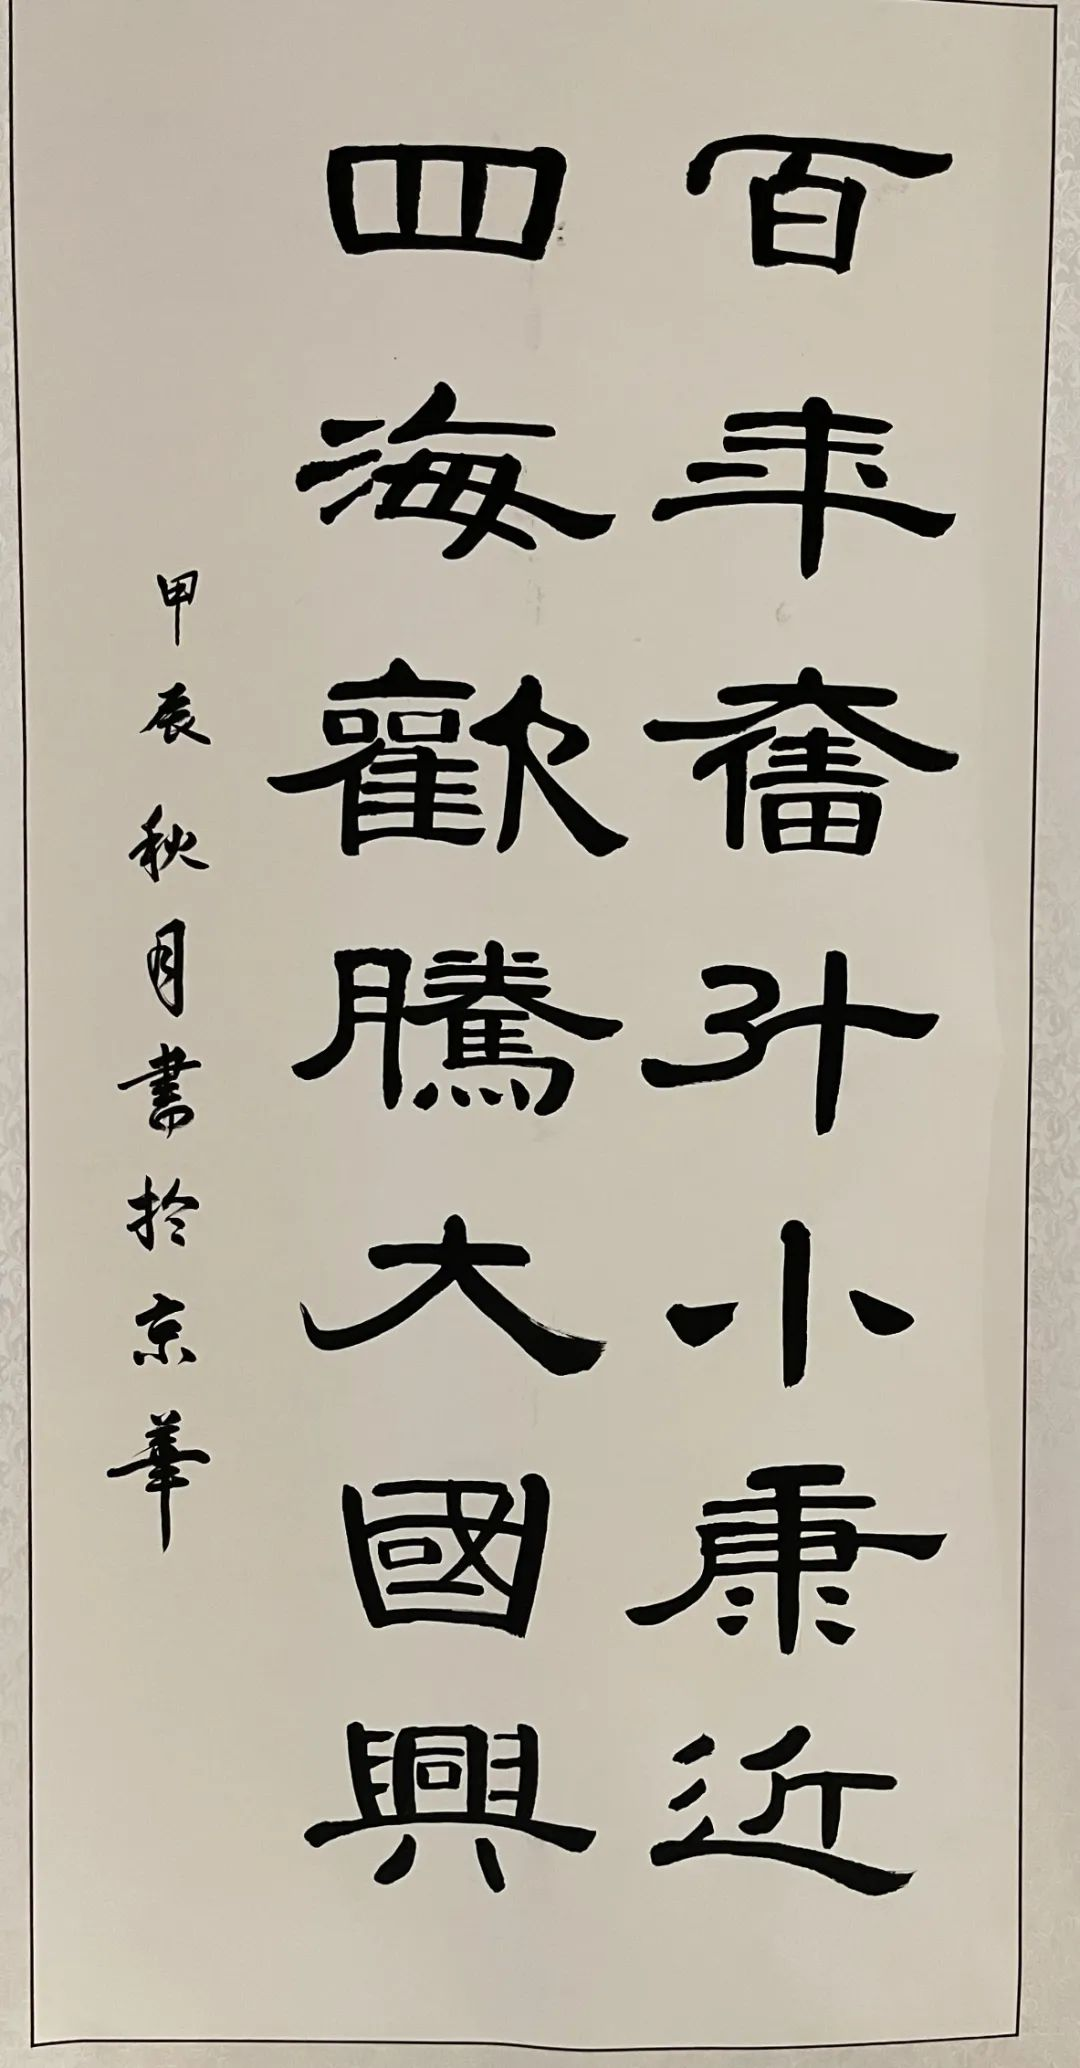 百年奮斗小康近
四海歡騰大國興
甲辰秋月書於京華